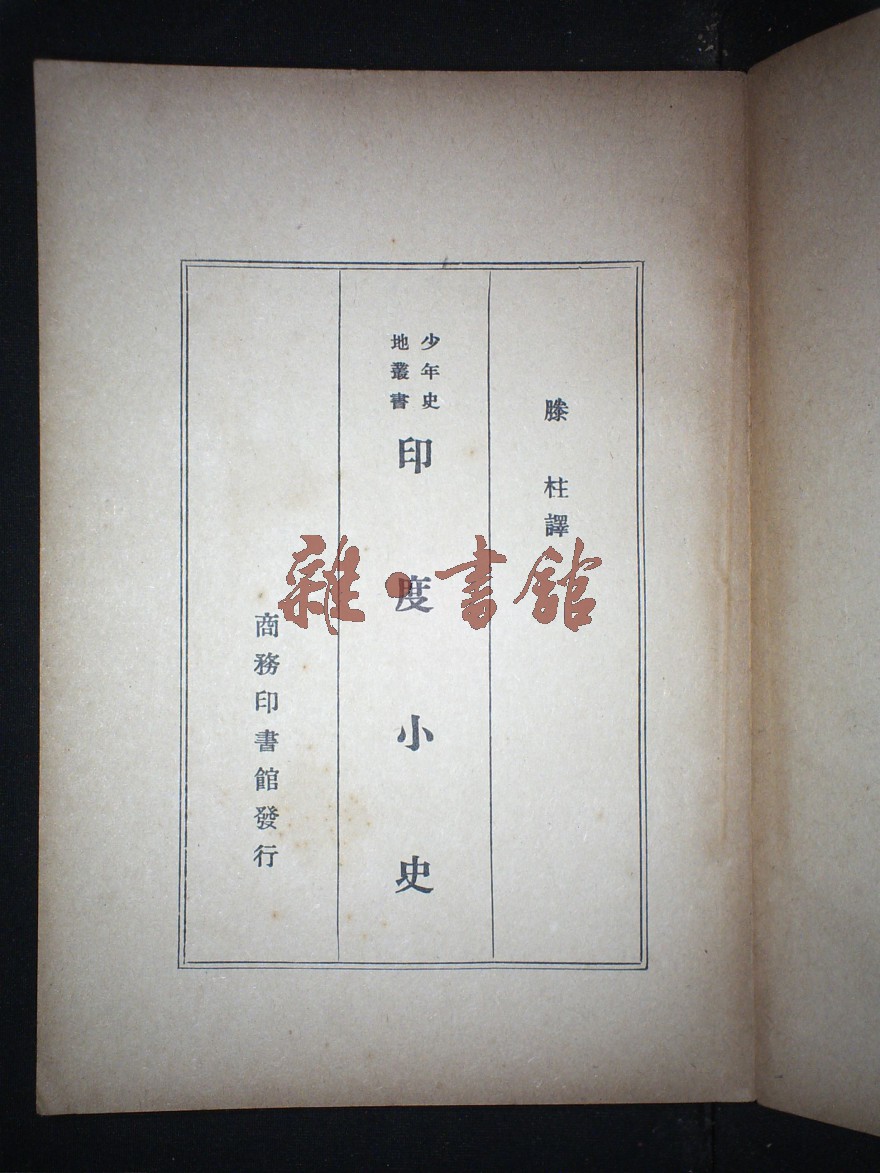 滕柱譯
少年史
地叢書
印度小史
商務印書館發行
雜·書館